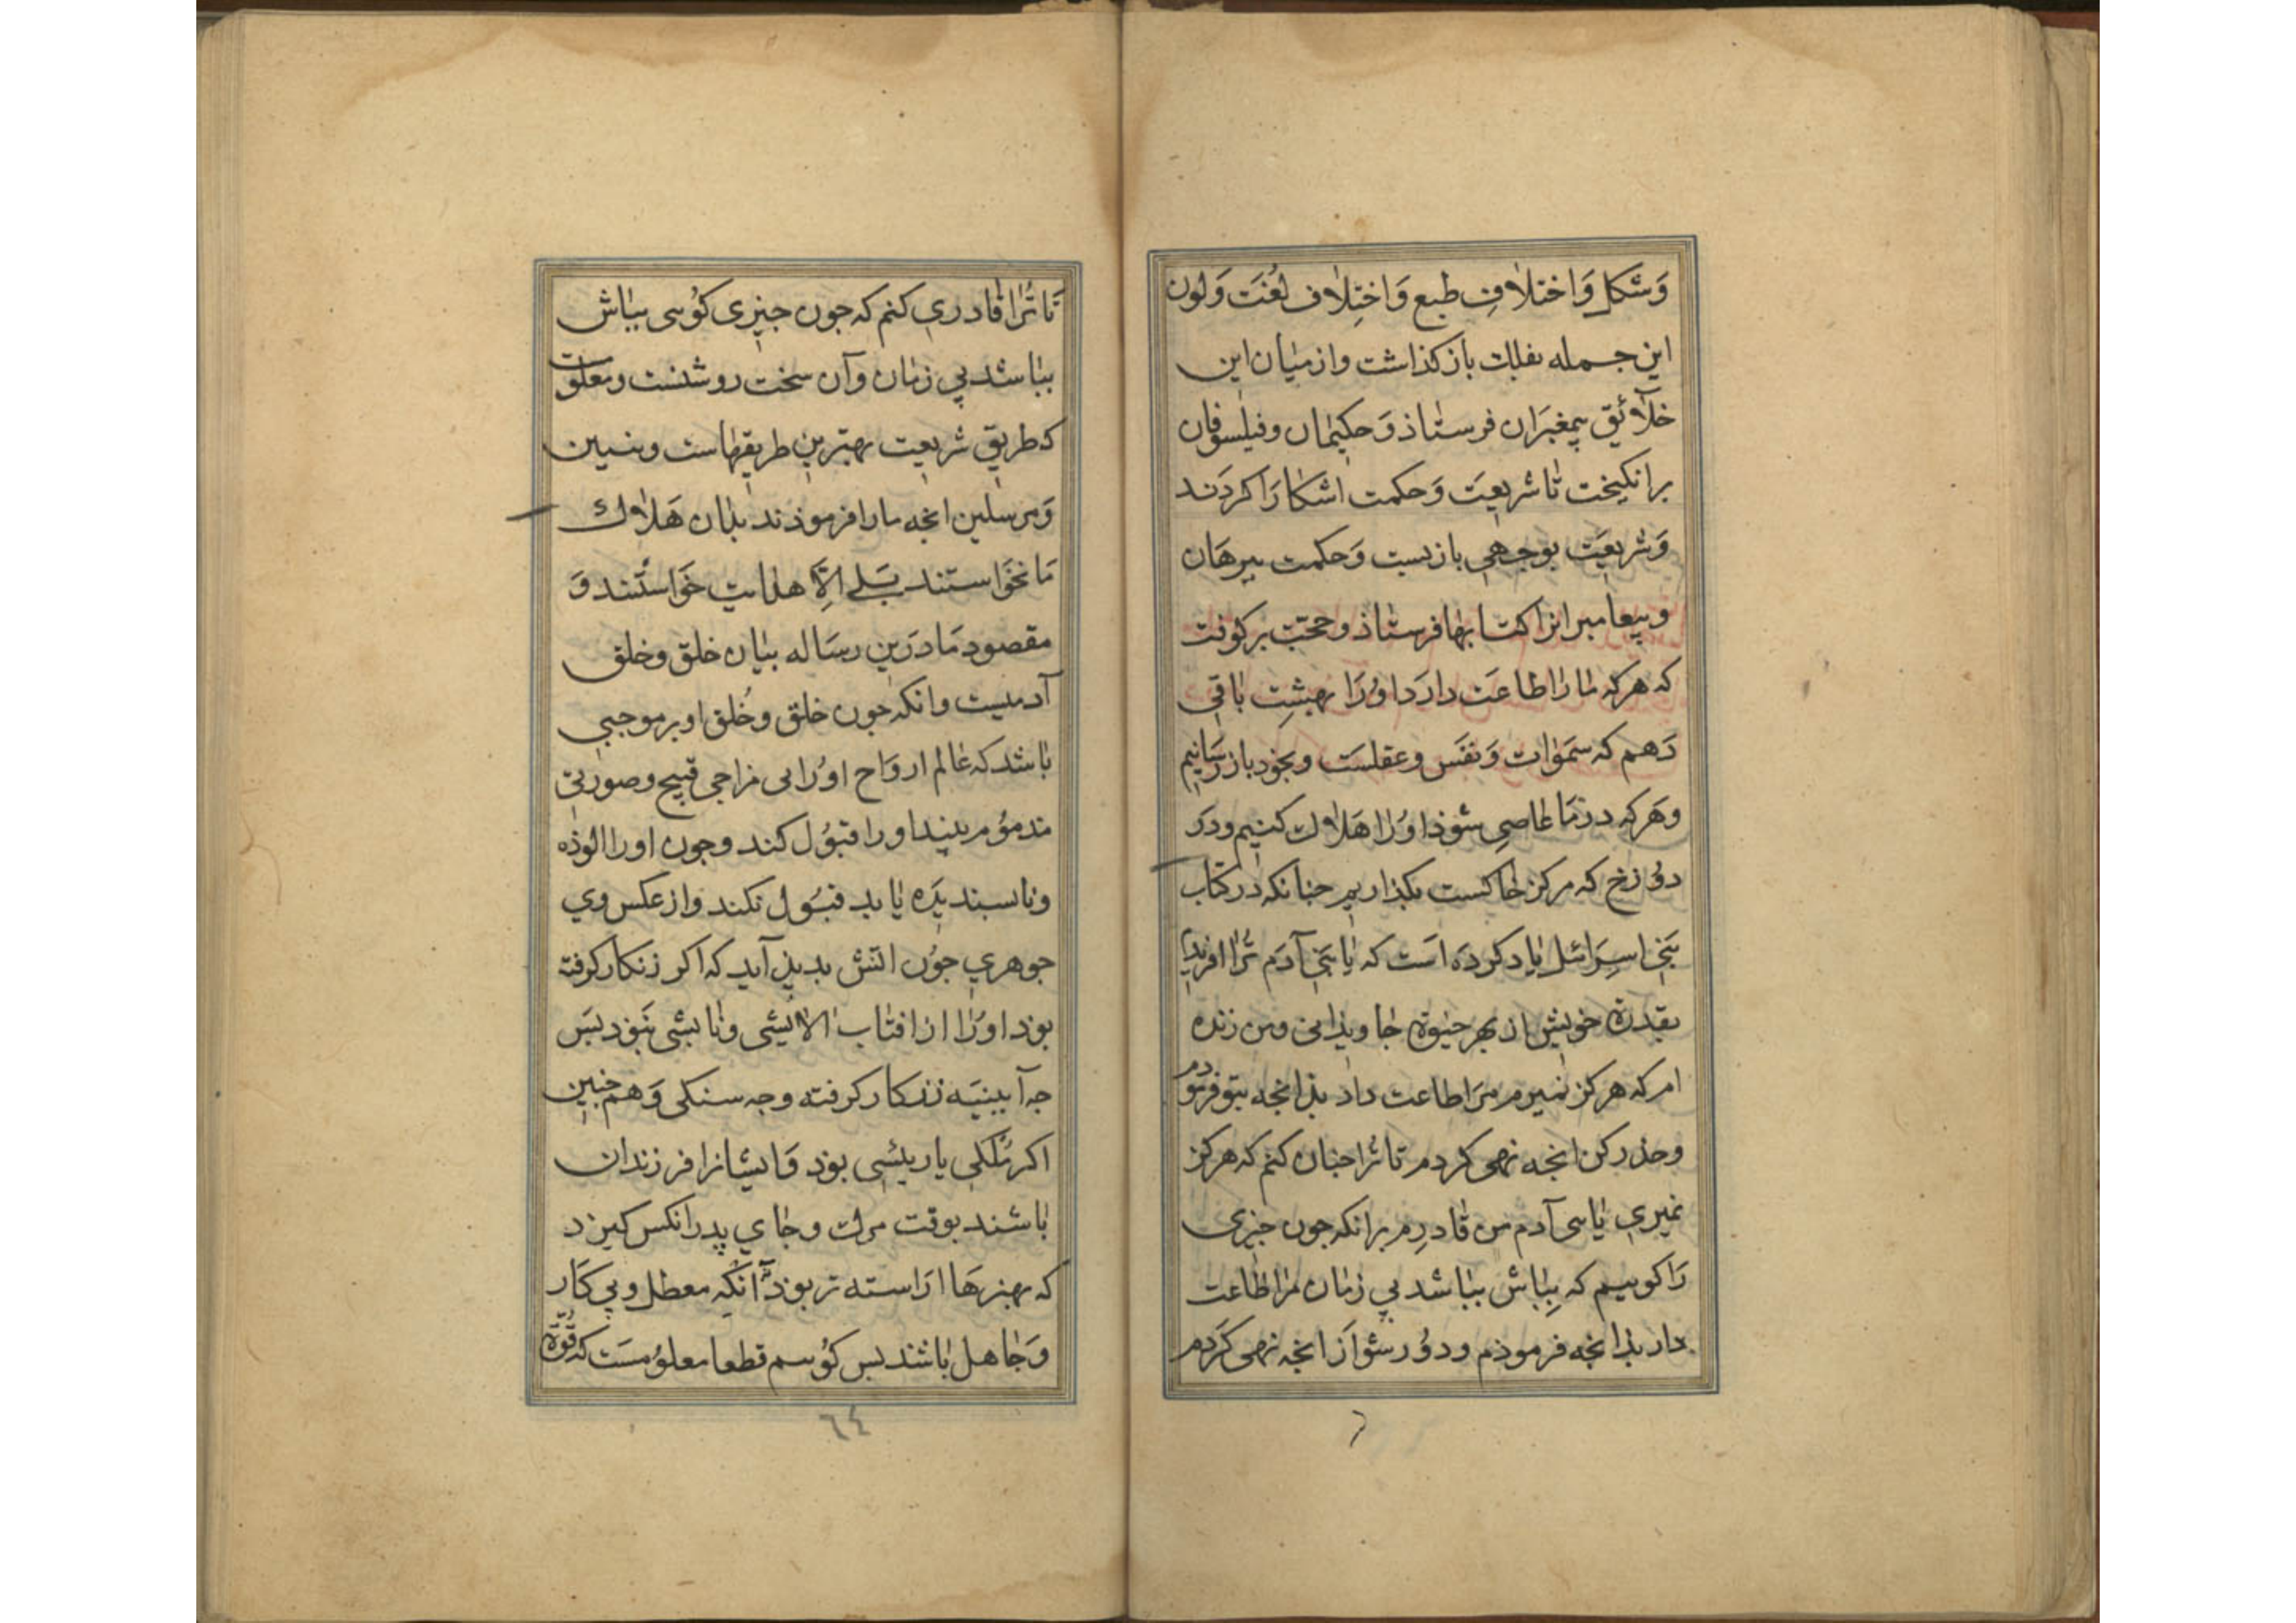 وَشکل وَاختلافِ طبع وَاختِلاف لُغَت وَلون
این جمله بفلک باز کذاشت واز میان این
خلائِق پیمغبَران فرستاذ وَحکیمان وفیلسوفان
برانکیخت تا شریعَت وَحکمت اشکارَا کردَند
وَشریعَت بوجهی بازبست وَحکمت ببرهَان
وپیغامبرانرا کتابها فرستاذ وحجّت برکوفت
که هرکه مارا طاعَت دارَد اوُرَا بهشِت باقی
دَهم که سَموٰات وَنفَس وعقلسَت وبخود باز رسَانیم
وهَرکه در مَا عاصی شوذ اوُرا هَلاک کنیم ودَر
دوُزخ که مرکز خاکست بکذاریم جنانکه در کتاب
بَنی اسِرَائل یاد کردَه اَست که یا بَنی آدَم تُرا افریدم
بقدرة خویش از بهر حیوة جاویذانی ومن زنده
ام که هرکز نمیرم مَرا طاعت داد بذانجه بتو فرموُدم
وحذر کن انجه نهی کردم تا تُرا جنان کنم که هرکز
نمیری یا بنی آدم من قادرم برانکه جون جیزی
رَا کوییم که بِباش بباشد بی زمان مرا طاعت
دار بذانجه فرموذم ودوُر شواَز انجه نهی کَردَم
٦
تا تُرا قادری کنم که جون جیزی کوُیی بباش
بباشد بی زمان وآن سخت روشنست ومعلومست
که طریق شریعت بهترین طریقهاست ونبیین
وَمرسلین انجه مارا فرموذند بذان هَلاک
مَا نخَواستند بَلی اِلّا هدایت خَواستند وَ
مقصود مَا درَین رسَاله بیان خلق وخلق
آدمیست وانکه جون خلق وخُلق او بر موجبی
باشد که عالم اروَاح اوُرا بی مزاجی قبیح وصورتی
مذموُم بیند اورا قبوُل کند وجون اورا الوُذه
وناپسندیدَه یابد قبُول نکند واز عکس وی
جوهری جوُن اتش بدیذ آید که اکر زنکار کرفته
بوَد اورَا از افتاب الایشی وتابشی نَبوَد بسَ
جه آیینیَه زنکار کرفته وجه سنکی وَهم جنین
اکر مَلکی یا ریٔسی بوَد وَایشانرا فرزندان
باشند بوقت مرک وجای پدر انکس کیرد
که بهنرهَا ارَاسته تر بوَد آنکه معطل وبی کار
وَجاهل باشند بس کوُییم قطعا معلوُمسَت که قوُّة
٦٤